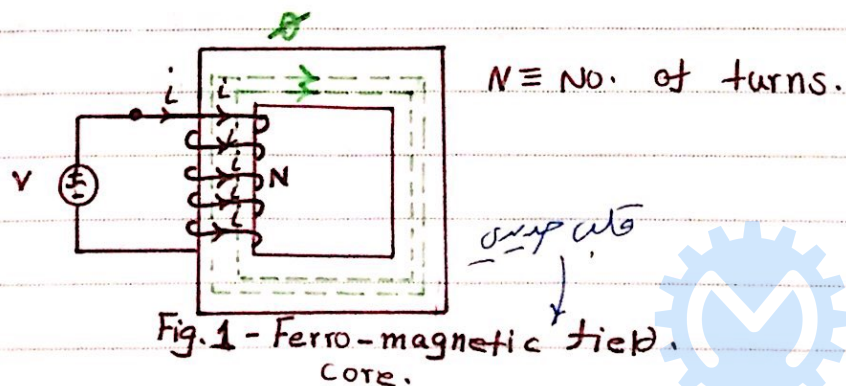 Ø
N ≡ No. of turns.
i
i
i
i
i
i
V
N
قلب حديدي
Fig. 1 - Ferro-magnetic field.
core.